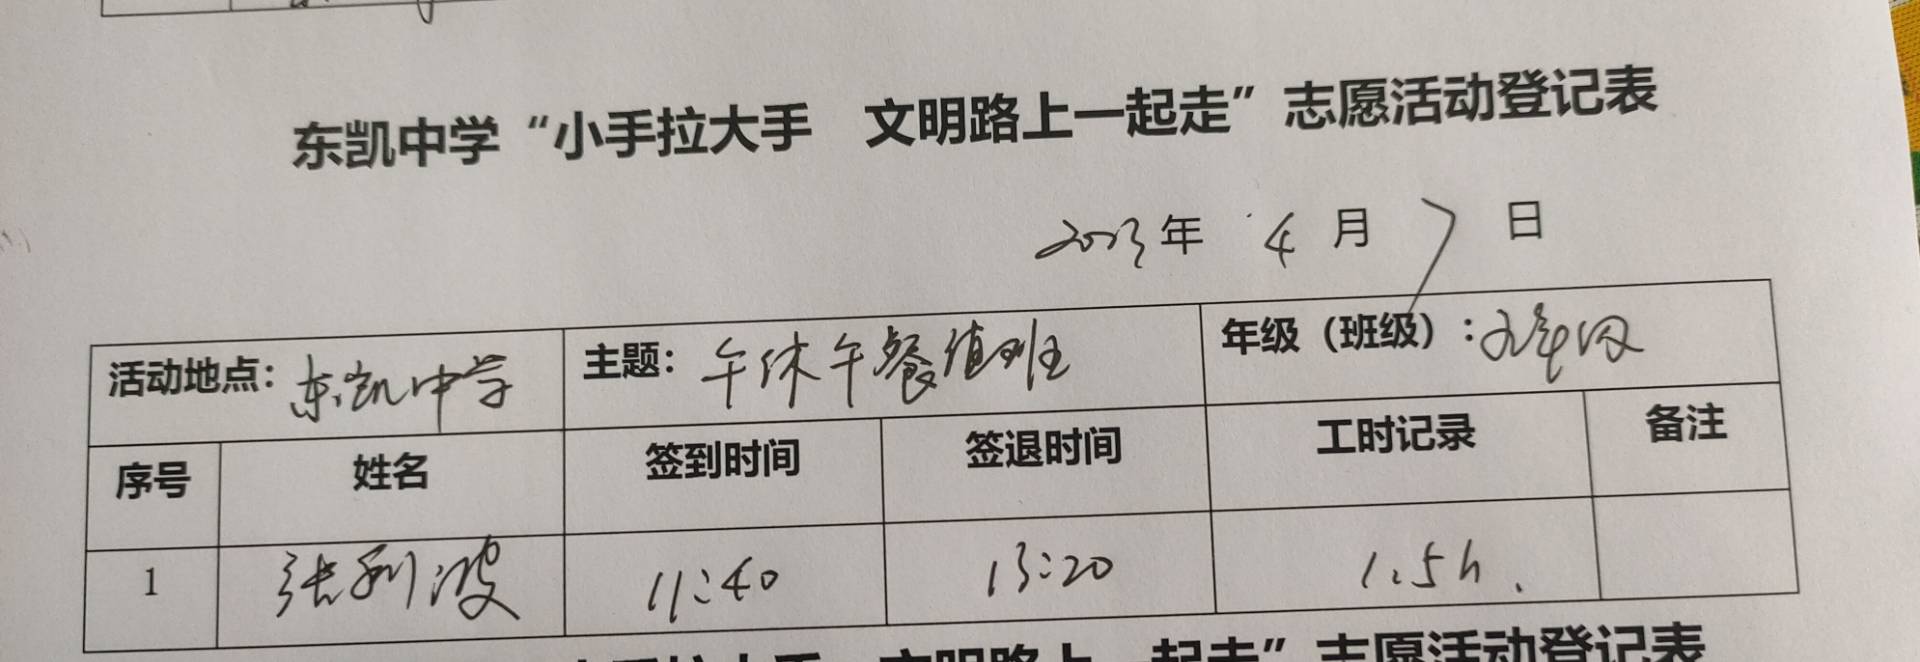 东凯中学“小手拉大手 文明路上一起走”志愿活动登记表
2023年 4 月 7 日
活动地点：东凯中学 主题：午休午餐值班 年级（班级）：九年级
序号 姓名 签到时间 签退时间 工时记录 备注
1 张利波 11:40 13:20 1.5h.
小手拉大手 文明路上一起走”志愿活动登记表